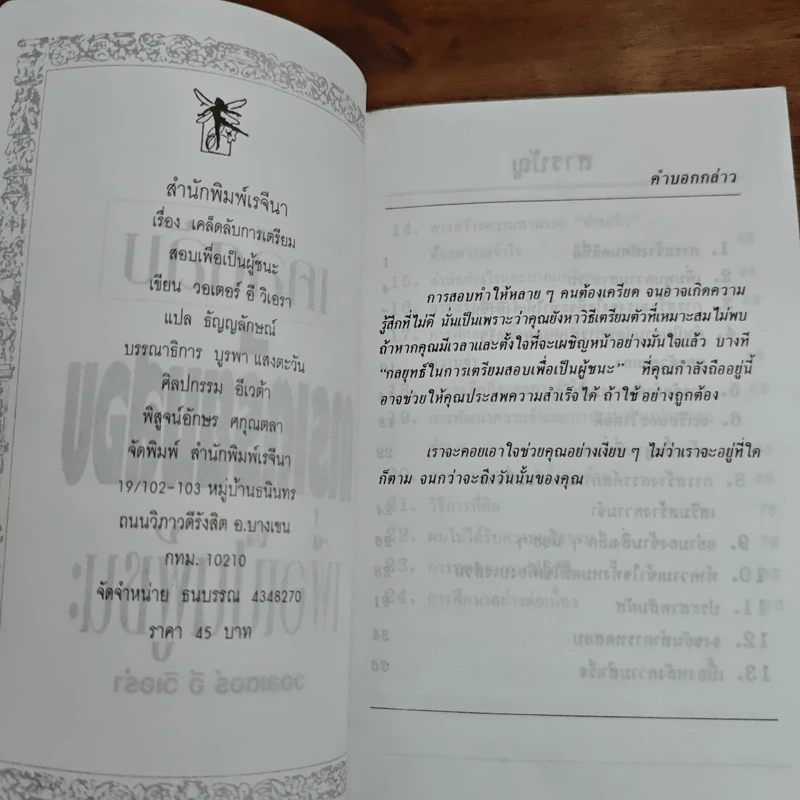 สำนักพิมพ์เรจีนา
เรื่อง เคล็ดลับการเตรียม
สอบเพื่อเป็นผู้ชนะ
เขียน วอเตอร์ อี วิเอรา
แปล ธัญญลักษณ์
บรรณาธิการ บูรพา แสงตะวัน
ศิลปกรรม อีเวต้า
พิสูจน์อักษร ศกุณตลา
จัดพิมพ์ สำนักพิมพ์เรจีนา
19/102-103 หมู่บ้านธนินทร
ถนนวิภาวดีรังสิต อ.บางเขน
กทม. 10210
จัดจำหน่าย ธนบรรณ 4348270
ราคา 45 บาท
คำบอกกล่าว
การสอบทำให้หลาย ๆ คนต้องเครียด จนอาจเกิดความ
รู้สึกที่ไม่ดี นั่นเป็นเพราะว่าคุณยังหาวิธีเตรียมตัวที่เหมาะสมไม่พบ
ถ้าหากคุณมีเวลาและตั้งใจที่จะเผชิญหน้าอย่างมั่นใจแล้ว บางที
"กลยุทธ์ในการเตรียมสอบเพื่อเป็นผู้ชนะ" ที่คุณกำลังถืออยู่นี้
อาจช่วยให้คุณประสพความสำเร็จได้ ถ้าใช้ อย่างถูกต้อง
เราจะคอยเอาใจช่วยคุณอย่างเงียบ ๆ ไม่ว่าเราจะอยู่ที่ใด
ก็ตาม จนกว่าจะถึงวันนั้นของคุณ